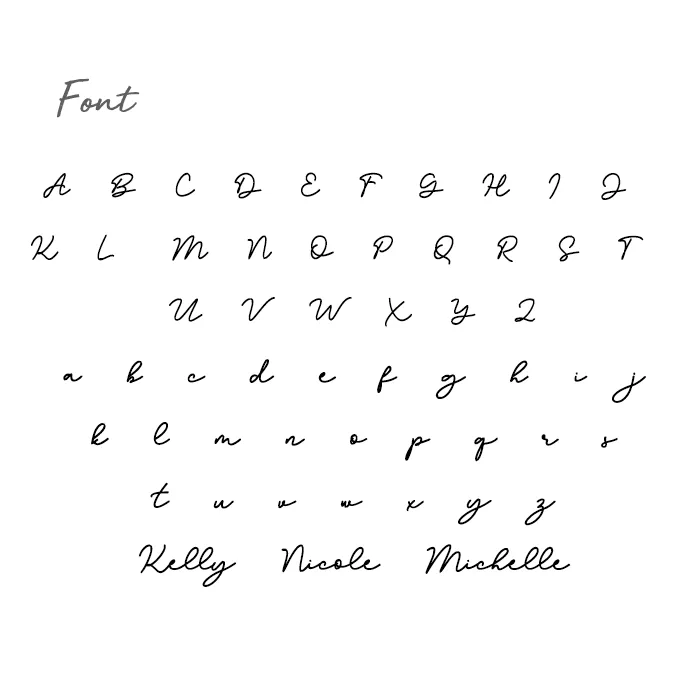 Font
A B C D E F G H I J
K L M N O P Q R S T
U V W X Y Z
a b c d e f g h i j
k l m n o p q r s
t u v w x y z
Kelly Nicole Michelle